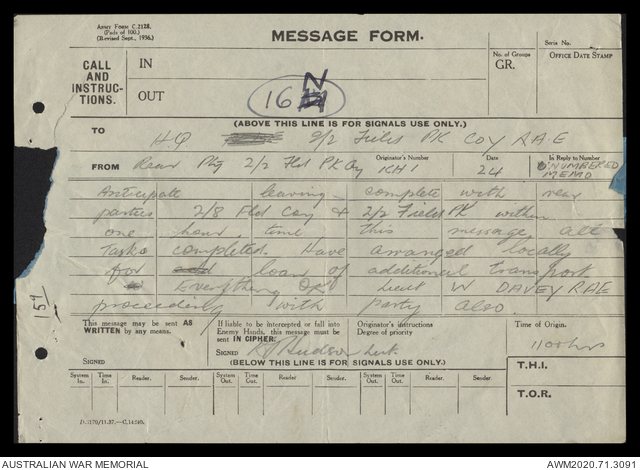 ARMY FORM C.2128.
(Pads of 100.)
(Revised Sept., 1936.)
MESSAGE FORM.
Serial No.
CALL AND INSTRUC-TIONS.
IN
No. of Groups
GR.
OFFICE DATE STAMP
OUT
16 N
(ABOVE THIS LINE IS FOR SIGNALS USE ONLY.)
TO HQ 2/2 Field PK COY RAE
FROM Rear Pty 2/2 Fld PK Coy Originator's Number KH1 Date 24 In Reply to Number UNNUMBERED MEMO
Anticipate leaving complete with rear
parties 2/8 Fld Coy & 2/2 Field PK within
one hour time this message all
Tasks completed. Have arranged locally
for loan of additional transport
Everything OK Lieut W DAVEY RAE
proceeding with party also.
159
This message may be sent AS WRITTEN by any means.
If liable to be intercepted or fall into Enemy Hands, this message must be sent IN CIPHER.
Originator's instructions Degree of priority
Time of Origin.
1100 hrs
SIGNED
SIGNED Hudson Lieut.
(BELOW THIS LINE IS FOR SIGNALS USE ONLY.)
T.H.I.
System In. Time In. Reader. Sender. System Out. Time Out. Reader. Sender. System Out. Time Out. Reader. Sender.
T.O.R.
D.3170/11.37.—C.14140.
AUSTRALIAN WAR MEMORIAL
AWM2020.71.3091